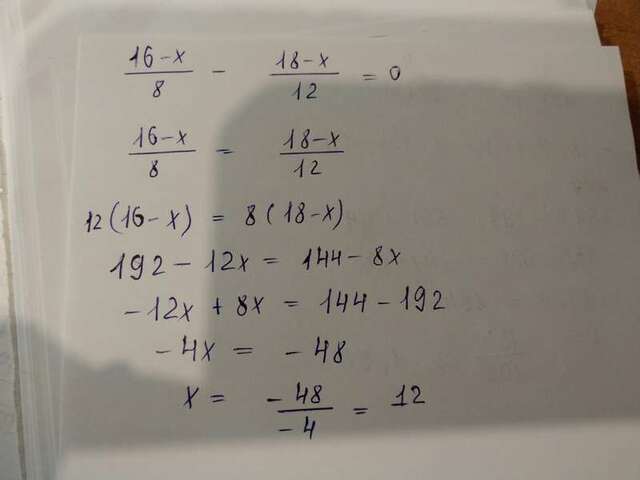 16-x/8 - 18-x/12 = 0
16-x/8 = 18-x/12
12(16-x) = 8(18-x)
192-12x = 144-8x
-12x+8x = 144-192
-4x = -48
x = -48/-4 = 12